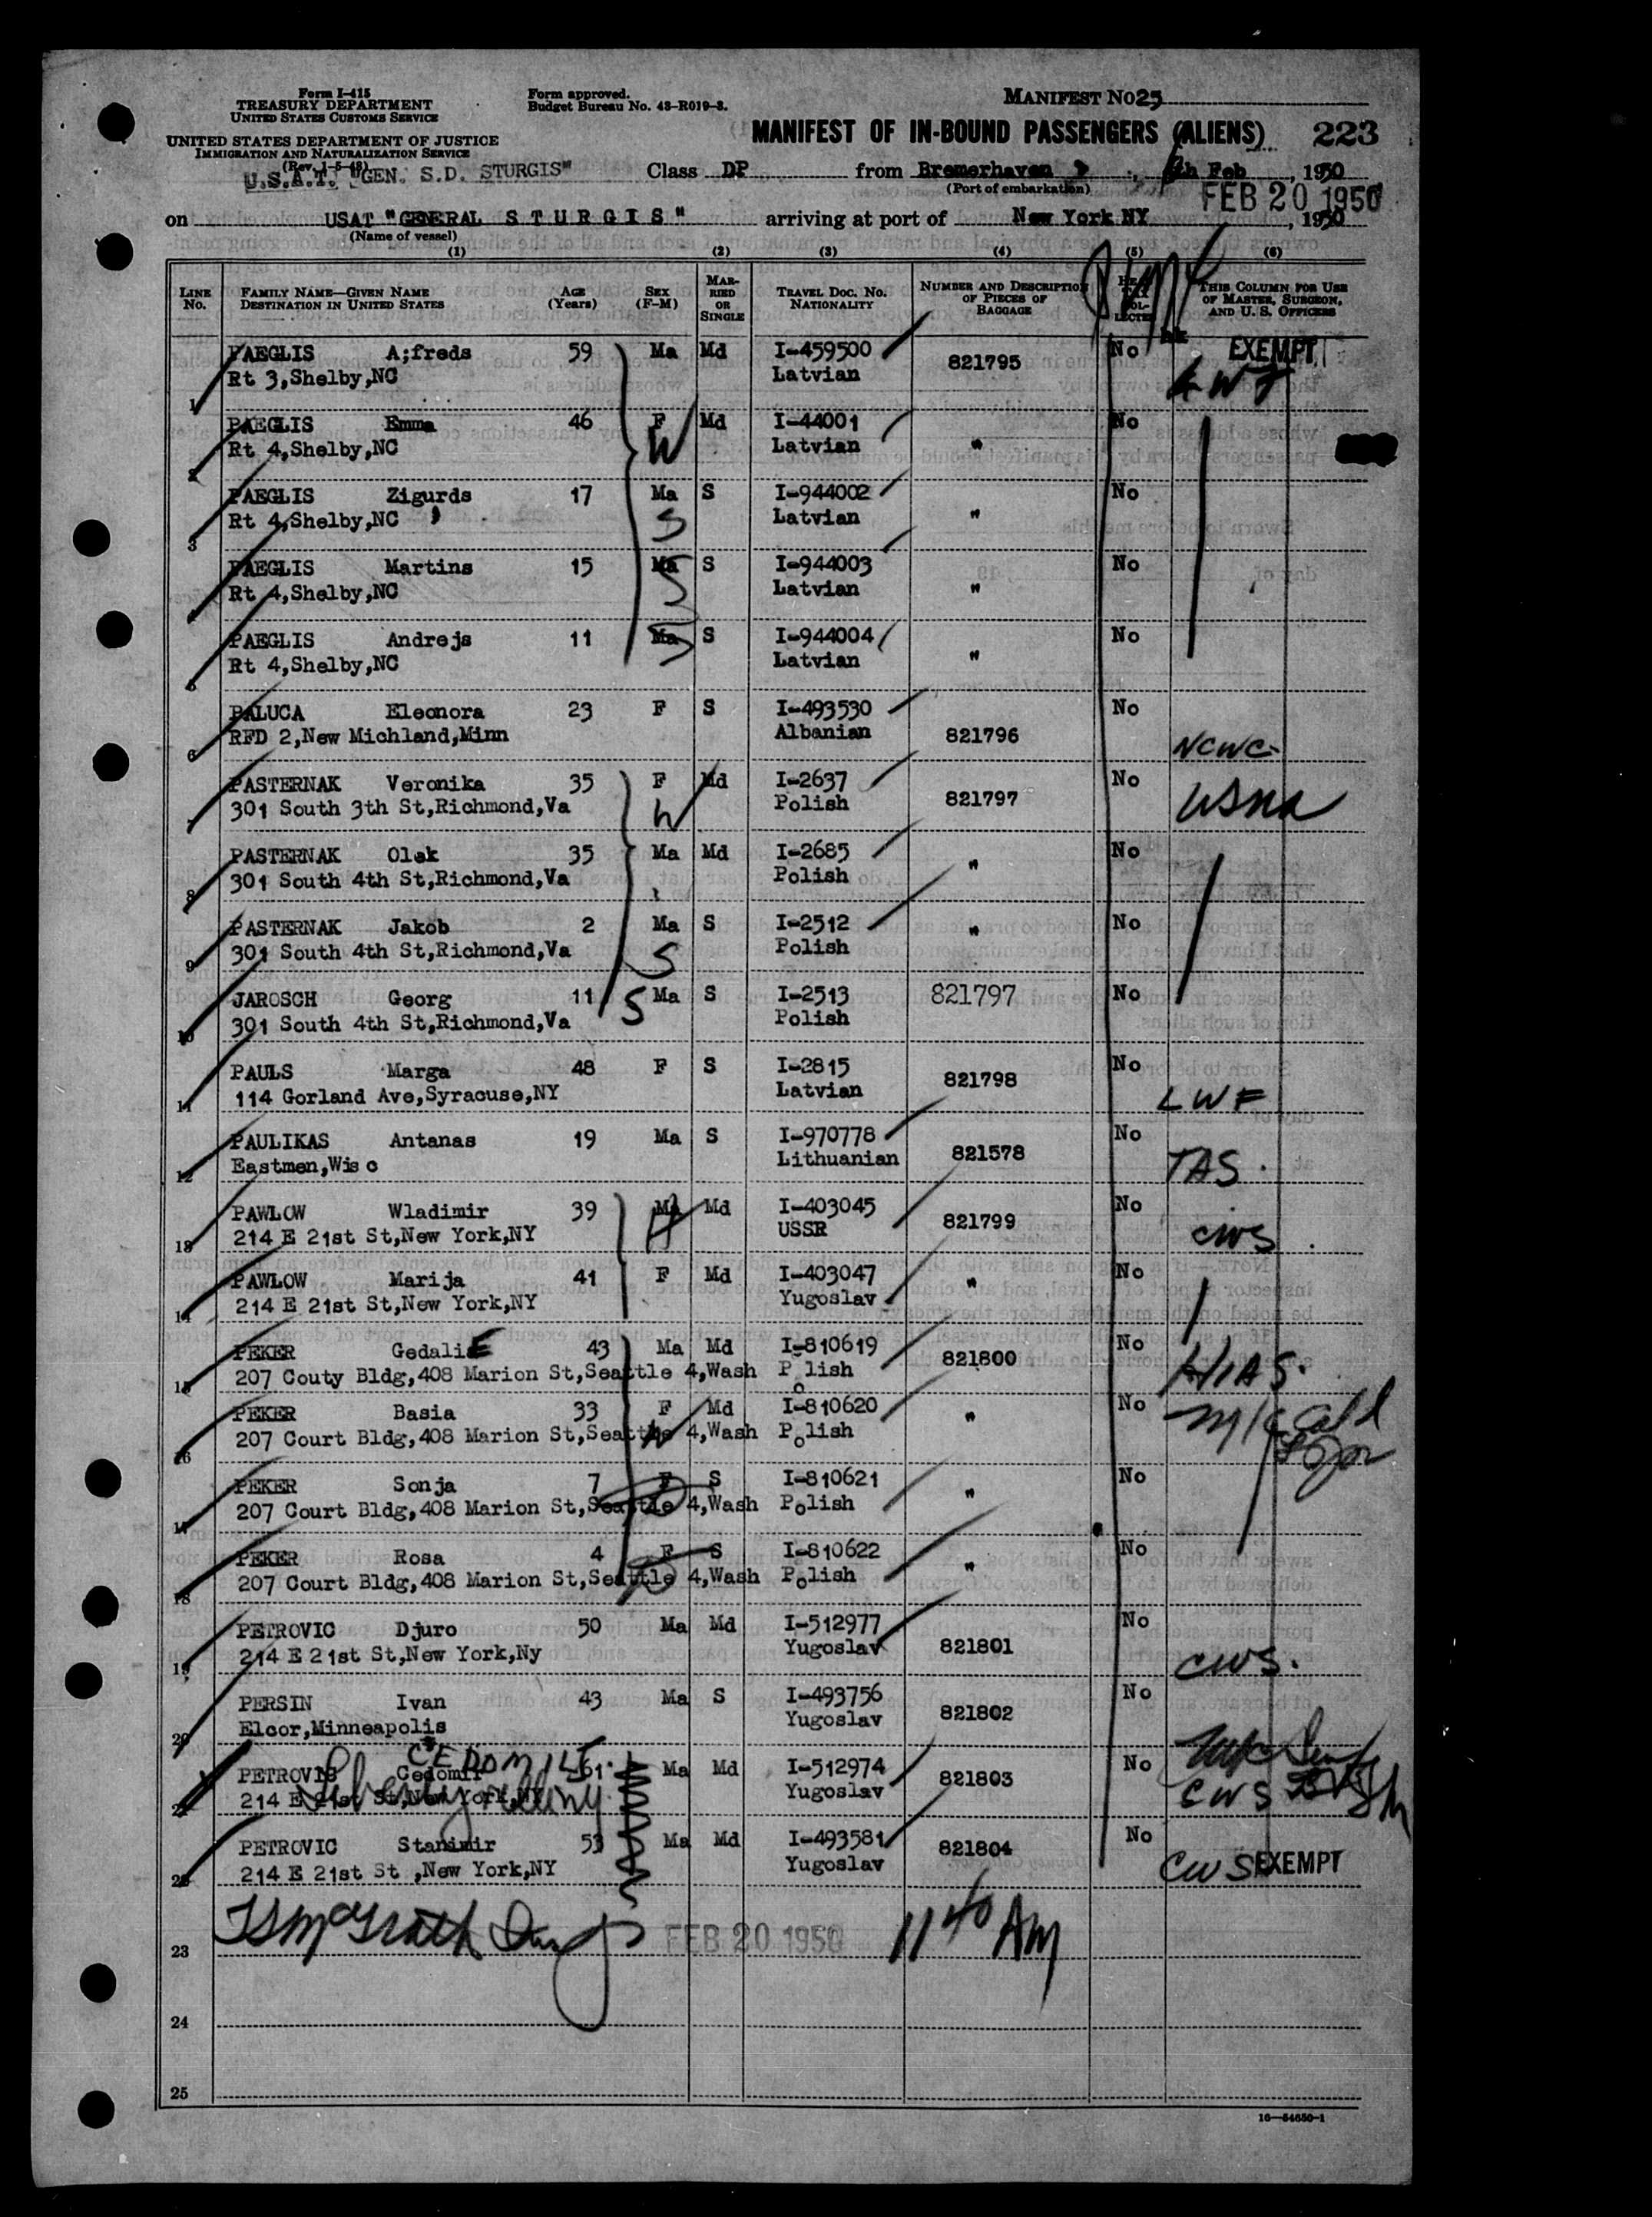 Form I-415
TREASURY DEPARTMENT
UNITED STATES CUSTOMS SERVICE
UNITED STATES DEPARTMENT OF JUSTICE
IMMIGRATION AND NATURALIZATION SERVICE
(Rev. 1-5-48)
Form approved.
Budget Bureau No. 43-R019-3.
MANIFEST NO 25
MANIFEST OF IN-BOUND PASSENGERS (ALIENS) 223
U.S.A.T. "GEN. S.D. STURGIS" Class DP from Bremerhaven, th Feb, 1950
(Port of embarkation)
FEB 20 1950
on USAT "GENERAL STURGIS" arriving at port of New York NY, 1950
(Name of vessel)
(1) (2) (3) (4) (5) (6)
LINE NO. FAMILY NAME—GIVEN NAME DESTINATION IN UNITED STATES AGE (Years) SEX (F-M) MARRIED OR SINGLE TRAVEL DOC. NO. NATIONALITY NUMBER AND DESCRIPTION OF PIECES OF BAGGAGE THIS COLUMN FOR USE OF MASTER, SURGEON, AND U. S. OFFICERS
PAEGLIS A;freds 59 Ma Md I-459500 821795 No EXEMPT
1 Rt 3,Shelby,NC Latvian LWF
PAEGLIS Emma 46 F Md I-44001 " No
2 Rt 4,Shelby,NC W Latvian
PAEGLIS Zigurds 17 Ma S I-944002 " No
3 Rt 4,Shelby,NC S Latvian
PAEGLIS Martins 15 Ma S I-944003 " No
4 Rt 4,Shelby,NC S Latvian
PAEGLIS Andrejs 11 Ma S I-944004 " No
5 Rt 4,Shelby,NC S Latvian
PALUCA Eleonora 23 F S I-493530 821796 No
6 RFD 2,New Michland,Minn Albanian NCWC
PASTERNAK Veronika 35 F Md I-2637 821797 No
7 301 South 3th St,Richmond,Va W Polish USNA
PASTERNAK Olek 35 Ma Md I-2685 " No
8 301 South 4th St,Richmond,Va Polish
PASTERNAK Jakob 2 Ma S I-2512 " No
9 301 South 4th St,Richmond,Va S Polish
JAROSCH Georg 11 S Ma S I-2513 821797 No
10 301 South 4th St,Richmond,Va Polish
PAULS Marga 48 F S I-2815 821798 No
11 114 Gorland Ave,Syracuse,NY Latvian LWF
PAULIKAS Antanas 19 Ma S I-970778 821578 No
12 Eastmen,Wis c Lithuanian TAS.
PAWLOW Wladimir 39 Ma Md I-403045 821799 No
13 214 E 21st St,New York,NY H USSR CWS
PAWLOW Marija 41 F Md I-403047 " No
14 214 E 21st St,New York,NY Yugoslav
PEKER GedaliE 43 Ma Md I-810619 821800 No
15 207 Couty Bldg,408 Marion St,Seattle 4,Wash Polish HIAS.
PEKER Basia 33 F Md I-810620 " No
16 207 Court Bldg,408 Marion St,Seattle 4,Wash W Polish
PEKER Sonja 7 F S I-810621 " No
17 207 Court Bldg,408 Marion St,Seattle 4,Wash D Polish
PEKER Rosa 4 F S I-810622 " No
18 207 Court Bldg,408 Marion St,Seattle 4,Wash D Polish
PETROVIC Djuro 50 Ma Md I-512977 821801 No
19 214 E 21st St,New York,Ny Yugoslav CWS.
PERSIN Ivan 43 Ma S I-493756 821802 No
20 Elcor,Minneapolis Yugoslav
CEDOMILJ
PETROVIC Cedomir 61 Ma Md I-512974 821803 No
21 214 E 21st St,New York,NY Yugoslav CWS
PETROVIC Stanimir 53 Ma Md I-493581 821804 No
22 214 E 21st St ,New York,NY Yugoslav CWS EXEMPT
23 FEB 20 1950 11 40 AM
24
25
16—54650-1